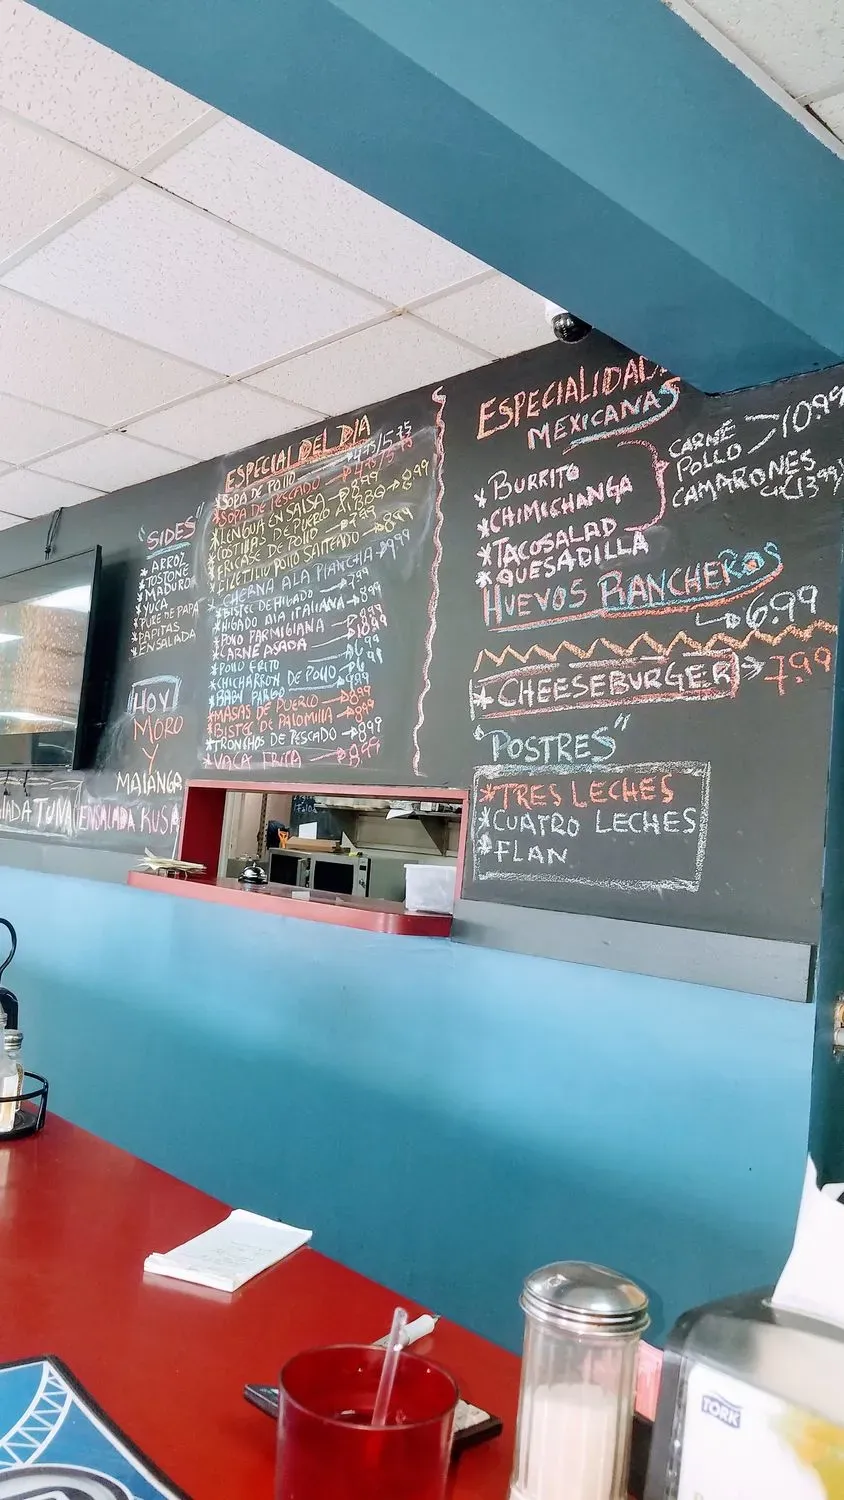 "SIDES"
ARROZ
TOSTONE
MADURO
YUCA
PURE DE PAPA
PAPITAS
ENSALADA
HOY
MORO
Y
MALANGA
TUNA
ENSALADA RUSA
ESPECIAL DEL DIA
*SOPA DE POLLO 4.75/5.75
*SOPA DE PESCADO 4.75/5.75
*LENGUA EN SALSA 8.99
*COSTILLAS DE PUERCO AL BBQ 8.99
*FRICASE DE POLLO 7.99
*FILETILLO POLLO SALTEADO 8.99
*CHERNA A LA PLANCHA 9.99
*BISTEC DE HIGADO 7.99
*HIGADO A LA ITALIANA 8.99
*POLLO PARMIGIANA 8.99
*CARNE ASADA 10.99
*POLLO FRITO
*CHICHARRON DE POLLO
*BABY PARGO
*MASAS DE PUERCO 8.99
*BISTEC DE PALOMILLA 8.99
*TRONCHOS DE PESCADO 8.99
*VACA FRITA 8.99
ESPECIALIDADES
MEXICANAS
*BURRITO
*CHIMICHANGA
*TACOSALAD
*QUESADILLA
CARNE
POLLO 10.99
CAMARONES
13.99
HUEVOS RANCHEROS
6.99
*CHEESEBURGER 7.99
"POSTRES"
*TRES LECHES
*CUATRO LECHES
*FLAN
TORK